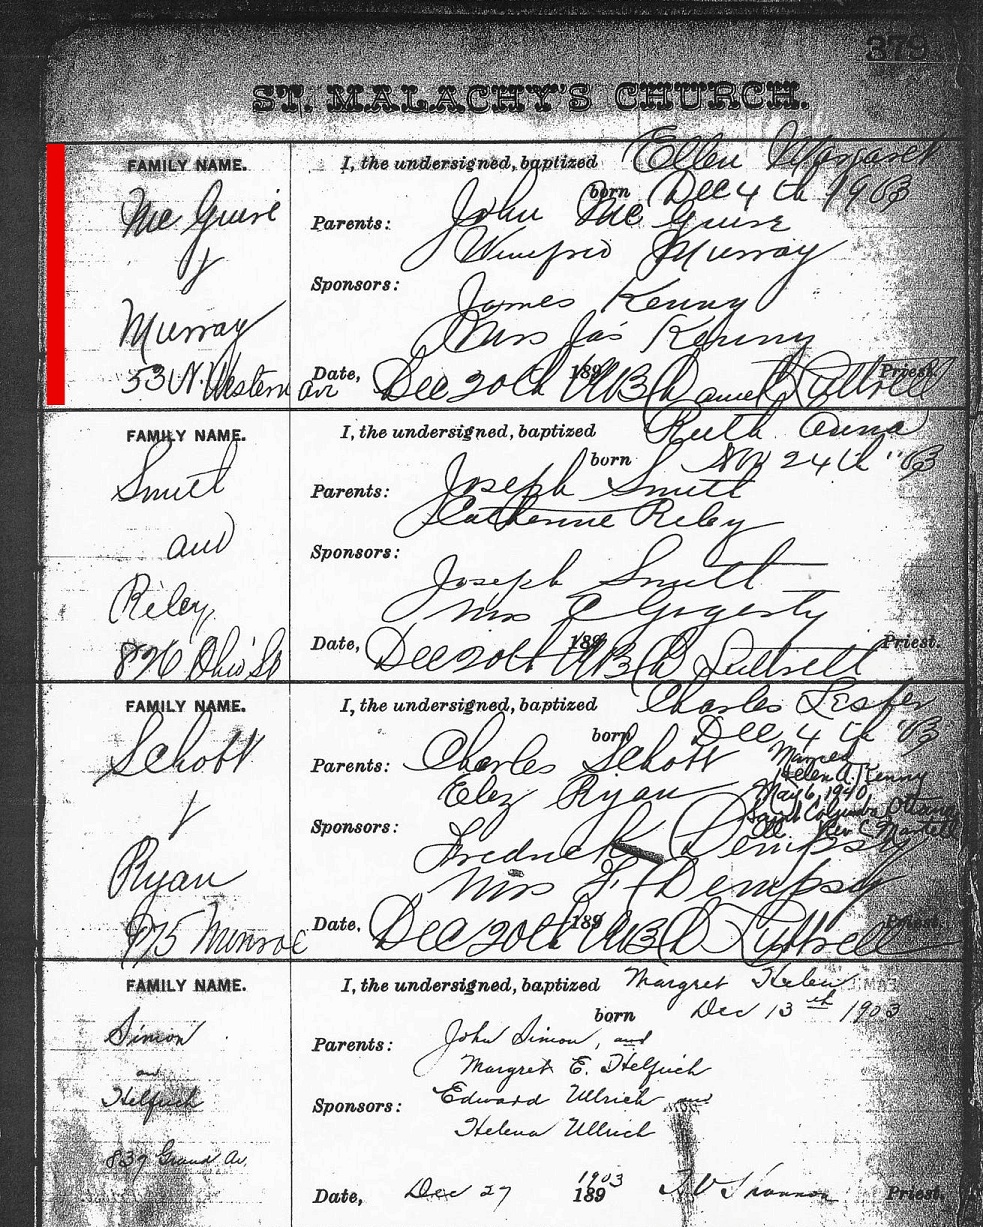 379
ST. MALACHY'S CHURCH.
FAMILY NAME. I, the undersigned, baptized Ellen Margaret
born Dec 4th 1903
Mc Guire Parents: John Mc Guire
& Winifred Murray
Sponsors: James Kenny
Murray Mrs Jas Kenny
53 N. Western av Date, Dec 20th 189 1903 Daniel Luttrell Priest.
FAMILY NAME. I, the undersigned, baptized Ruth Anna
born Nov 24th "03
Smith Parents: Joseph Smith
and Catherine Riley
Sponsors: Joseph Smith
Riley Mrs Gogerty
876 Ohio St Date, Dec 20th 189 1903 D Luttrell Priest.
FAMILY NAME. I, the undersigned, baptized Charles Lester
born Dec 4th '03
Schott Parents: Charles Schott
& Eliz Ryan
Married
Helen A. Kenny
May 6, 1940,
Saint Columba, Ottawa
Ill. Rev C Martell
Sponsors: Fredrick Dempsy
Ryan Mrs F. Dempsy
975 Munroe Date, Dec 20th 189 1903 D Luttrell Priest.
FAMILY NAME. I, the undersigned, baptized Margret Helen
born Dec 13th 1903
Simon Parents: John Simon, and
and Margret E. Helfrich
Helfrich Sponsors: Edward Ullrich and
Helena Ullrich
839 Grand Av.
Date, Dec 27 1903 189 Shannon Priest.